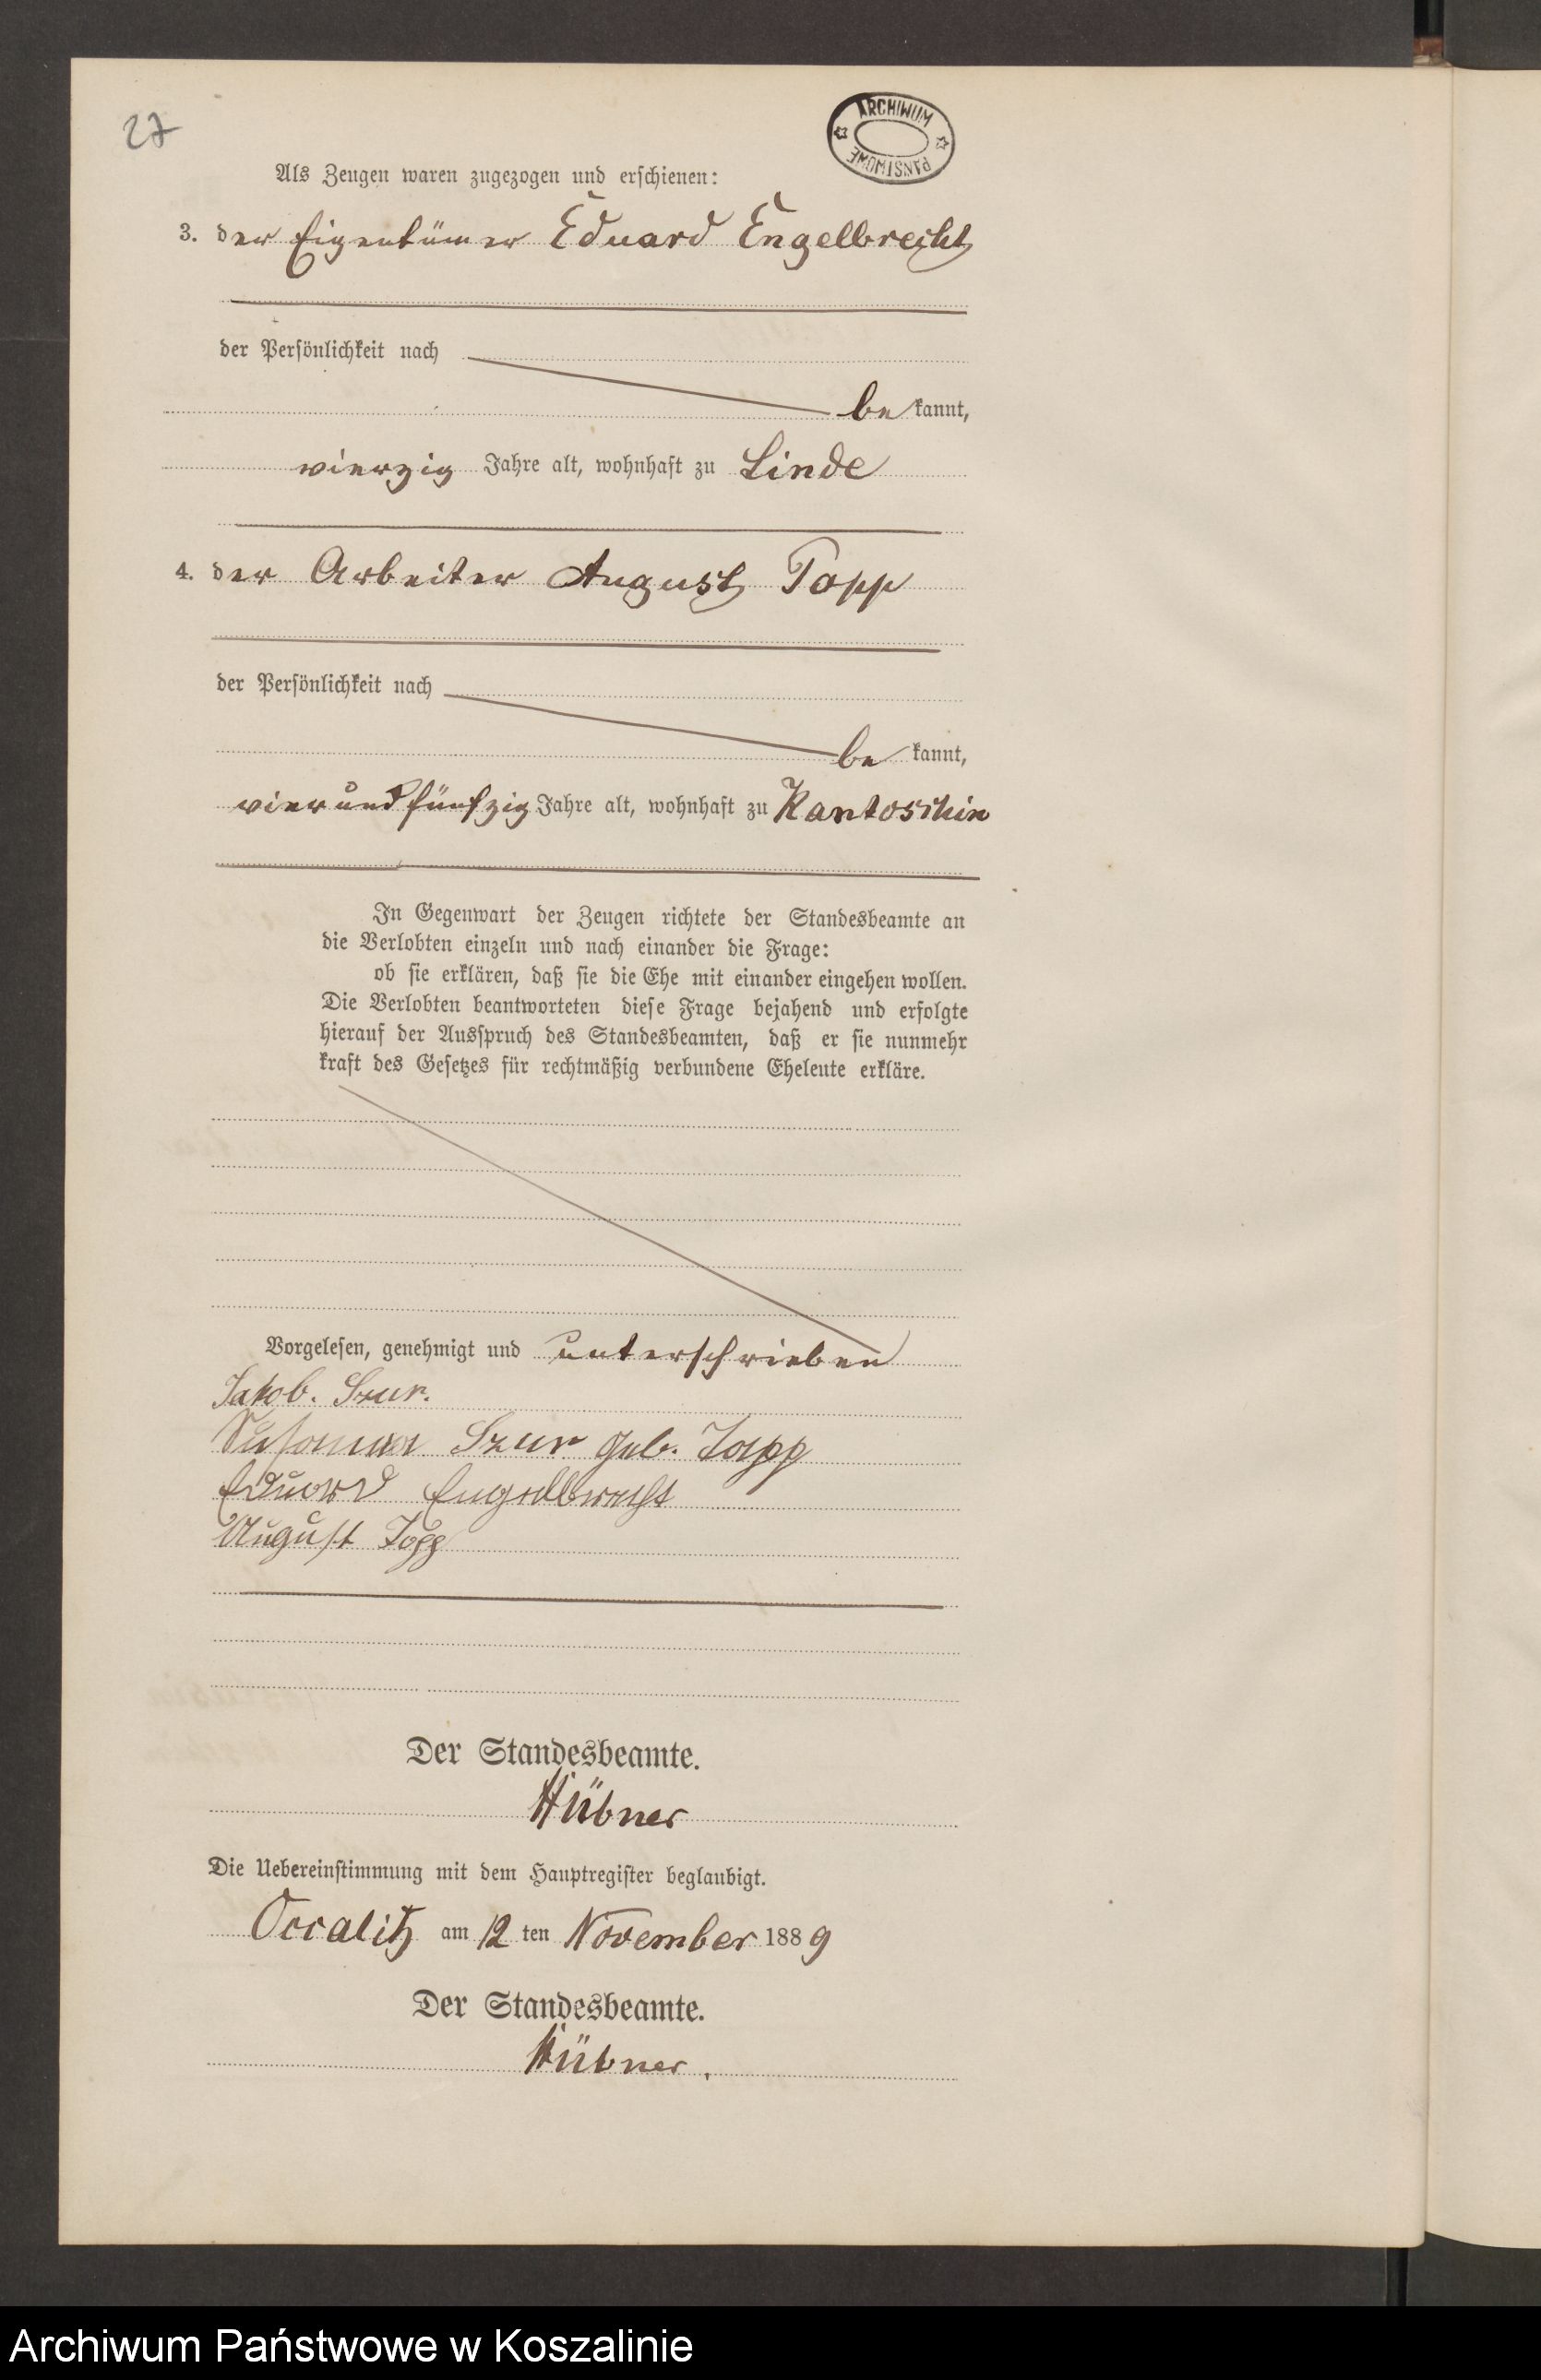 27
ARCHIWUM PAŃSTWOWE
Als Zeugen waren zugezogen und erschienen:
3. der Eigentümer Eduard Engelbrecht
der Persönlichkeit nach
be kannt,
vierzig Jahre alt, wohnhaft zu Linde
4. der Arbeiter August Topp
der Persönlichkeit nach
be kannt,
vierundfünfzig Jahre alt, wohnhaft zu Kantoschin
In Gegenwart der Zeugen richtete der Standesbeamte an
die Verlobten einzeln und nach einander die Frage:
ob sie erklären, daß sie die Ehe mit einander eingehen wollen.
Die Verlobten beantworteten diese Frage bejahend und erfolgte
hierauf der Ausspruch des Standesbeamten, daß er sie nunmehr
kraft des Gesetzes für rechtmäßig verbundene Eheleute erkläre.
Vorgelesen, genehmigt und unterschrieben
Jakob. Szur.
Susanna Szur geb. Topp
Eduard Engelbrecht
August Topp
Der Standesbeamte.
Hübner
Die Uebereinstimmung mit dem Hauptregister beglaubigt.
Occalitz am 12 ten November 1889
Der Standesbeamte.
Hübner.
Archiwum Państwowe w Koszalinie